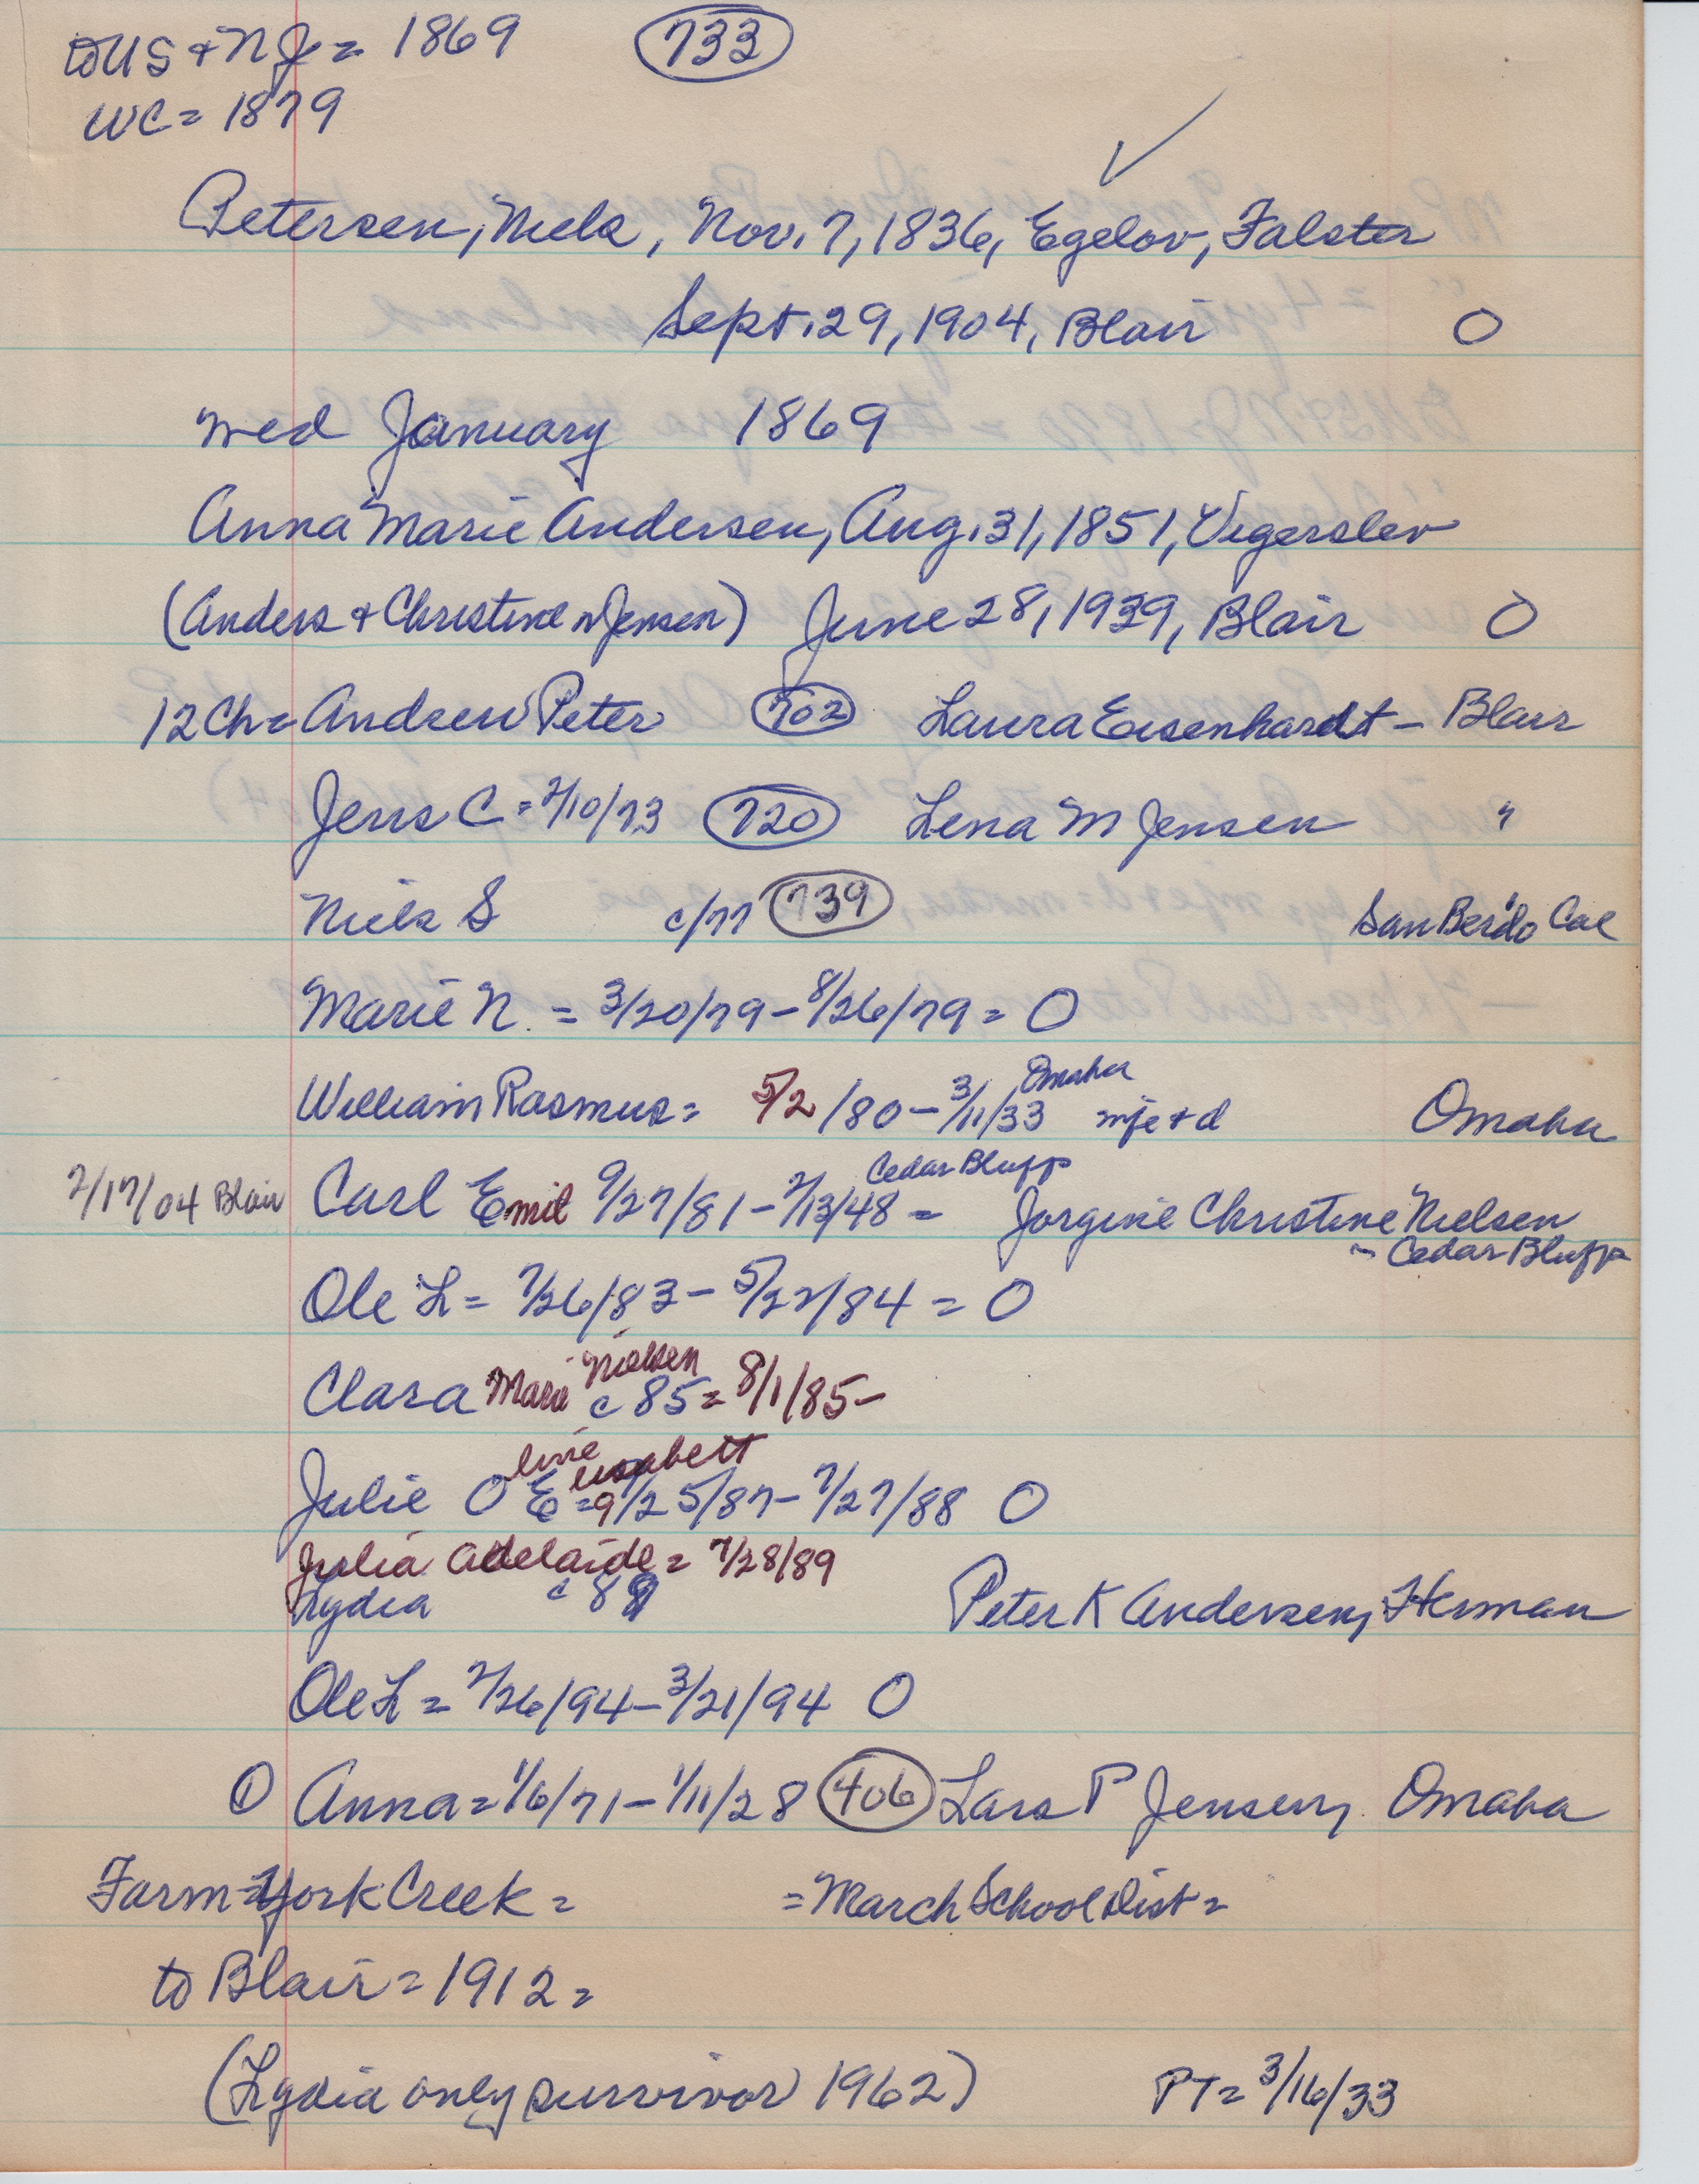 to US + NJ = 1869 733
WC = 1879
Petersen, Niels, Nov. 7, 1836, Egelov, Falster
Sept. 29, 1904, Blair O
med January 1869
Anna Marie Andersen, Aug. 31, 1851, Vigerslev
(Anders + Christine n Jensen) June 28, 1939, Blair O
12 Ch = Andrew Peter 702 Laura Eisenhardt - Blair
Jens C = 2/10/73 720 Lena M Jensen "
Niels S c/77 739 San Berdo Cal
Marie N. = 3/20/79 - 8/26/79 = O
Omaha
William Rasmus = 5/2/80 - 3/11/33 mfe + d Omaha
Cedar Bluffs
2/17/04 Blair Carl Emil 9/27/81 - 2/13/48 = Jorgine Christine Nielsen
- Cedar Bluffs
Ole L = 7/26/83 - 5/27/84 = O
Nielsen
Clara Marie c 85 = 8/1/85 -
line lisabett
Julie O E = 9/25/87 - 7/27/88 O
Julia Adelaide = 7/28/89
Lydia c 89 Peter K Andersen, Herman
Ole L = 2/26/94 - 3/21/94 O
① Anna = 1/6/71 - 1/11/28 406 Lars P Jensen, Omaha
Farm = York Creek = = March School Dist =
to Blair = 1912 =
(Lydia only survivor 1962) PT = 3/16/33